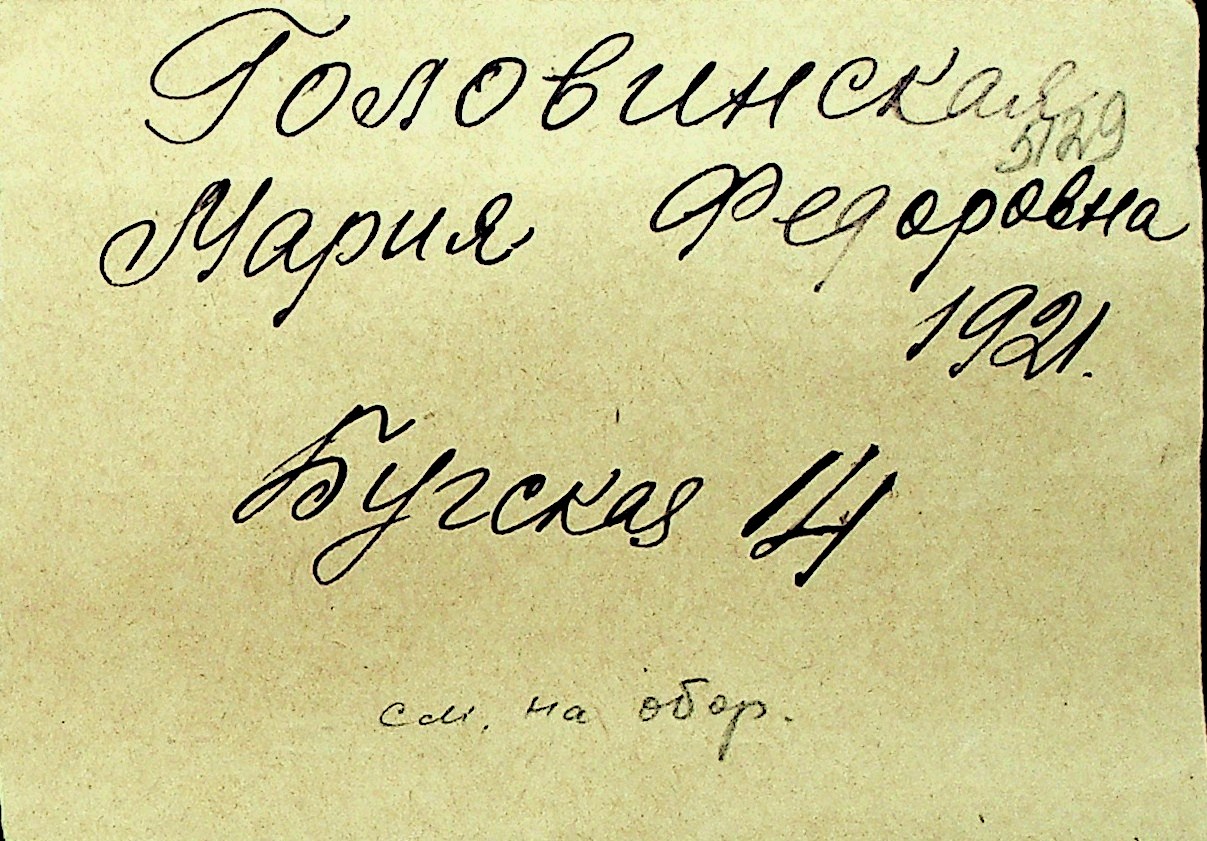 Головинская
5129
Мария Федоровна
1921.
Бугская 14
см. на обор.